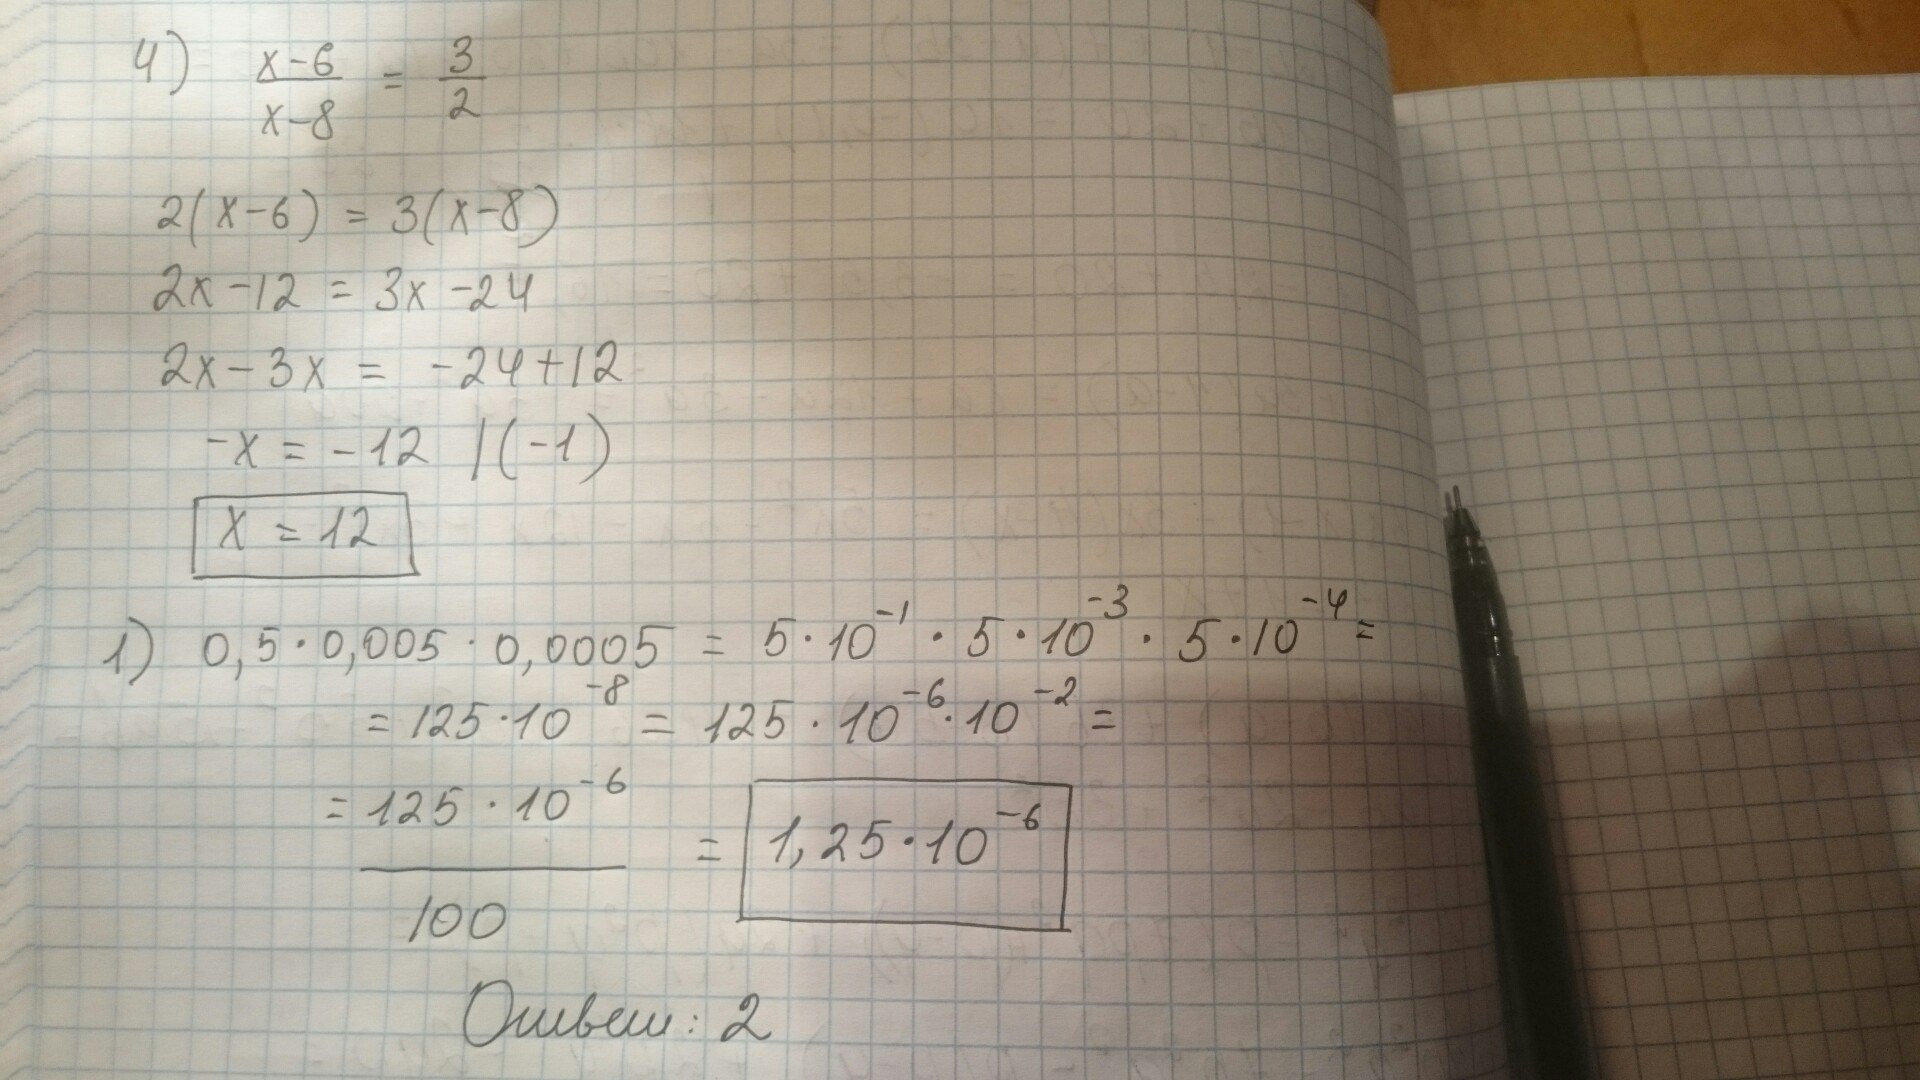 4) x-6/x-8 = 3/2
2(x-6) = 3(x-8)
2x-12 = 3x-24
2x-3x = -24+12
-x = -12 |(-1)
x = 12
1) 0,5·0,005·0,0005 = 5·10⁻¹·5·10⁻³·5·10⁻⁴=
=125·10⁻⁸ = 125·10⁻⁶·10⁻² =
= 125·10⁻⁶/100 = 1,25·10⁻⁶
Ответ: 2